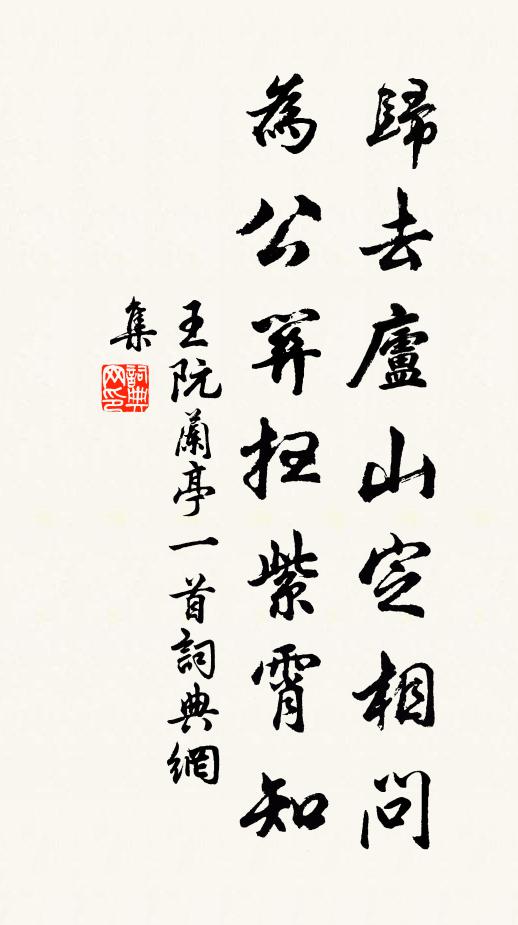 歸去廬山定相問
為公扫紫霄知
王阮蘭亭一首詞典網
集
詞典
网印